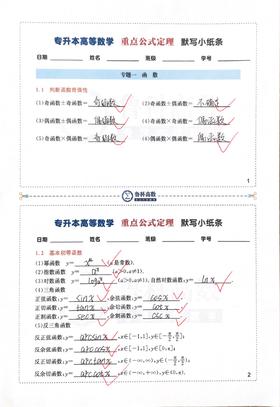 专升本高等数学 重点公式定理 默写小纸条
日期 姓名 班级 学号
专题一 函 数
1.1 判断函数奇偶性
(1)奇函数±奇函数= 奇函数 (2)奇函数±偶函数= 不确定
(3)偶函数±偶函数= 偶函数 (4)奇函数×奇函数= 偶函数
(5)奇函数×偶函数= 奇函数 (6)偶函数×偶函数= 偶函数
1
鲁林高数
专升本高等数学 重点公式定理 默写小纸条
日期 姓名 班级 学号
1.2 基本初等函数
(1)幂函数 y= (a是常数).
(2)指数函数 y= aˣ (a>0,a≠1).
(3)对数函数 y= (a>0,a≠1),自然对数函数y= ln x .
(4)三角函数
正弦函数:y= sin x ,余弦函数:y= cos x .
正切函数:y= tan x ,余切函数:y= cot x .
正割函数:y= sec x ,余割函数:y= csc x .
(5)反三角函数
反正弦函数:y= arcsin x ,x∈[-1,1],y∈[-π/2,π/2];
反余弦函数:y= arccos x ,x∈[-1,1],y∈[0,π];
反正切函数:y= arctan x ,x∈(-∞,+∞),y∈(-π/2,π/2);
反余切函数:y= arccot x ,x∈(-∞,+∞),y∈(0,π).
2